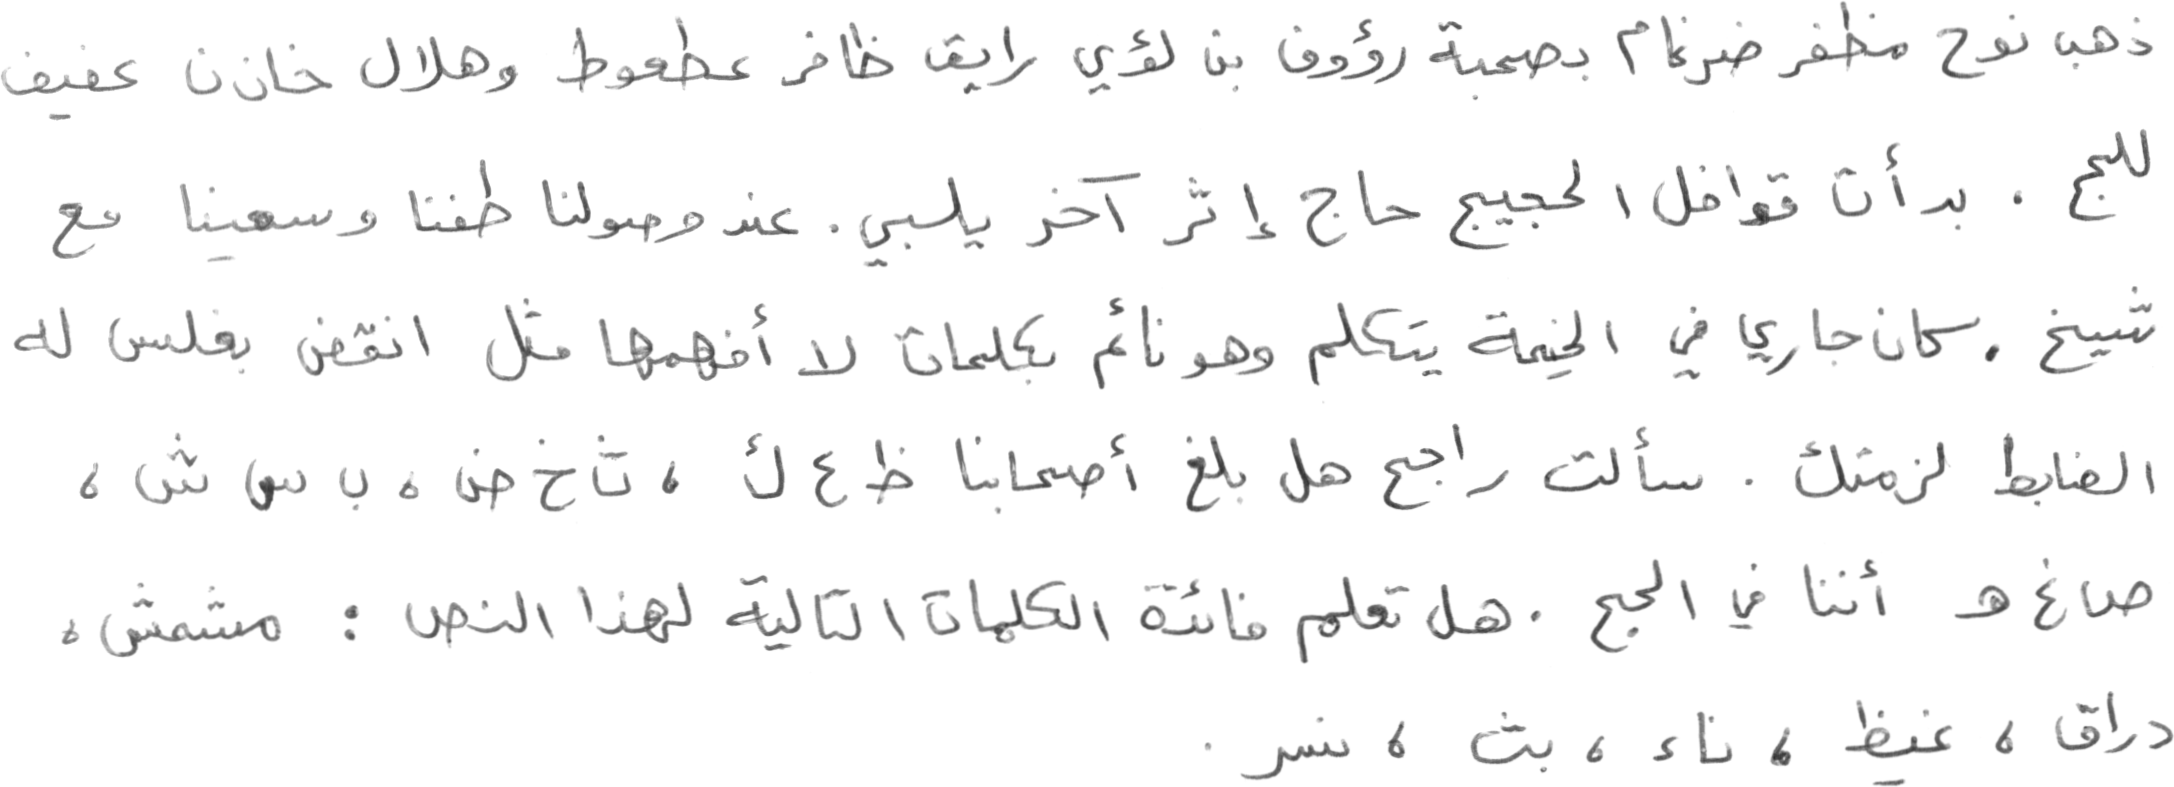 ذهب نوح مظفر ضرغام بصحبة رؤوف بن لؤي رايق ظافر عطعوط وهلال خازن عفيف
للحج . بدأت قوافل الحجيج حاج إثر آخر يلبي . عند وصولنا طفنا وسعينا مع
شيخ . كان جاري في الخيمة يتكلم وهو نائم بكلمات لا أفهمها مثل انقض بغلس له
الضابط لزمتك . سألت راجح هل بلغ أصحابنا ظ ع ك ، ث خ ض ، ب س ش ،
ص غ هـ أننا في الحج . هل تعلم فائدة الكلمات التالية لهذا النص : مشمش ،
دراق ، غيظ ، ناء ، بث ، نسر .